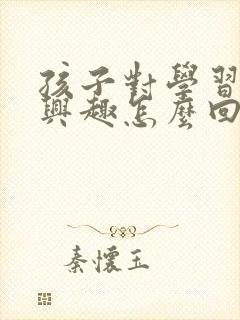 孩子對學習
興趣怎麼回
秦懷玉